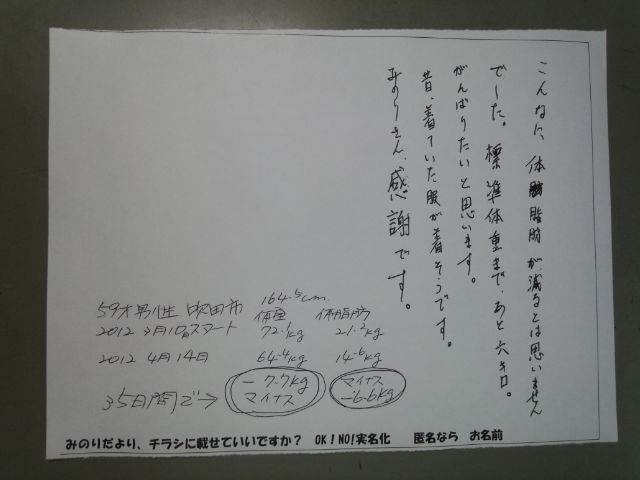 こんなに、体脂肪が減るとは思いません
でした。標準体重まで、あと六キロ。
がんばりたいと思います。
昔、着ていた服が着そうです。
みのりさん、感謝です。
59才男性 吹田市 164.5cm
体重 体脂肪
2012 3月10日スタート 72.1kg 21.2kg
2012 4月14日 64.4kg 14.6kg
35日間で→ －7.7kg マイナス －6.6kg マイナス
みのりだより、チラシに載せていいですか？ OK！NO！実名化 匿名なら お名前